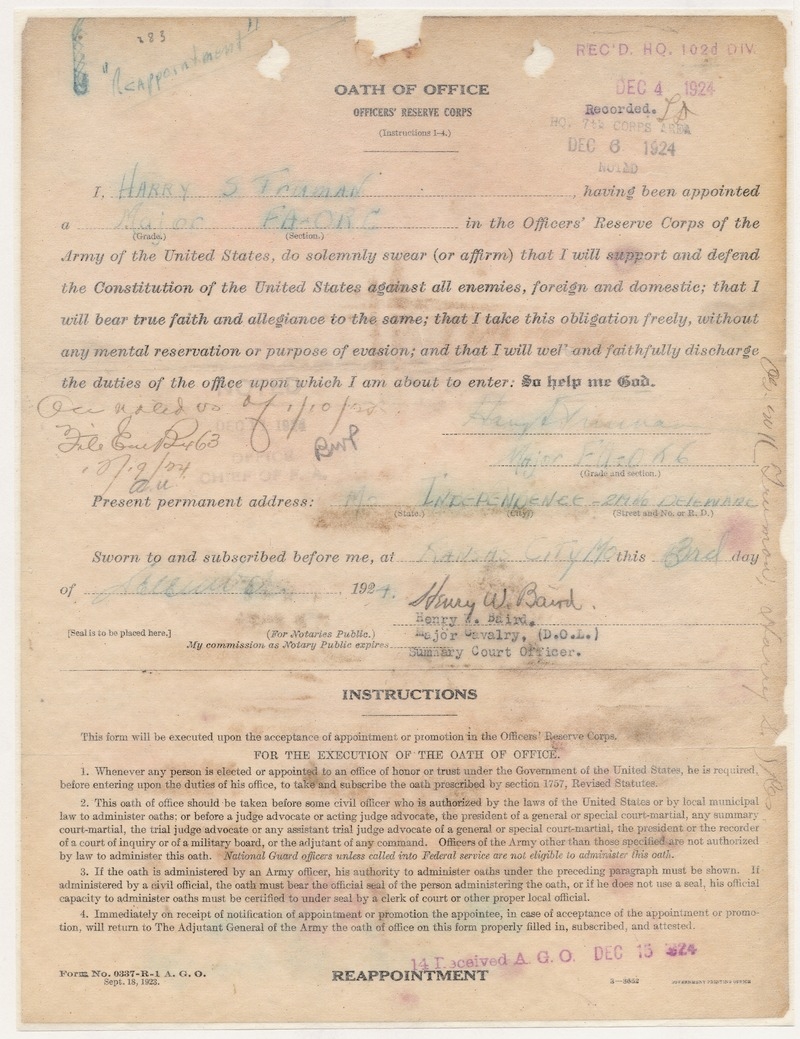 283
"Reappointment"
REC'D. HQ. 102d DIV.
DEC 4 1924
Recorded.
HQ. 7th CORPS AREA
DEC 6 1924
NOTED
OATH OF OFFICE
OFFICERS' RESERVE CORPS
(Instructions 1-4.)
I, HARRY S TRUMAN, having been appointed
a Major FA-ORC in the Officers' Reserve Corps of the
(Grade.) (Section.)
Army of the United States, do solemnly swear (or affirm) that I will support and defend
the Constitution of the United States against all enemies, foreign and domestic; that I
will bear true faith and allegiance to the same; that I take this obligation freely, without
any mental reservation or purpose of evasion; and that I will well and faithfully discharge
the duties of the office upon which I am about to enter: So help me God.
Harry S Truman
Major FA-ORC
(Grade and section.)
Present permanent address: Mo INDEPENDENCE - DELAWARE
(State.) (City.) (Street and No. or R. D.)
Sworn to and subscribed before me, at KANSAS CITY Mo this 3rd day
of December, 1924.
Henry W. Baird.
Henry W. Baird,
[Seal is to be placed here.] (For Notaries Public.) Major Cavalry, (D.O.L.)
My commission as Notary Public expires Summary Court Officer.
INSTRUCTIONS
This form will be executed upon the acceptance of appointment or promotion in the Officers' Reserve Corps.
FOR THE EXECUTION OF THE OATH OF OFFICE.
1. Whenever any person is elected or appointed to an office of honor or trust under the Government of the United States, he is required,
before entering upon the duties of his office, to take and subscribe the oath prescribed by section 1757, Revised Statutes.
2. This oath of office should be taken before some civil officer who is authorized by the laws of the United States or by local municipal
law to administer oaths; or before a judge advocate or acting judge advocate, the president of a general or special court-martial, any summary
court-martial, the trial judge advocate or any assistant trial judge advocate of a general or special court-martial, the president or the recorder
of a court of inquiry or of a military board, or the adjutant of any command. Officers of the Army other than those specified are not authorized
by law to administer this oath. National Guard officers unless called into Federal service are not eligible to administer this oath.
3. If the oath is administered by an Army officer, his authority to administer oaths under the preceding paragraph must be shown. If
administered by a civil official, the oath must bear the official seal of the person administering the oath, or if he does not use a seal, his official
capacity to administer oaths must be certified to under seal by a clerk of court or other proper local official.
4. Immediately on receipt of notification of appointment or promotion the appointee, in case of acceptance of the appointment or promo-
tion, will return to The Adjutant General of the Army the oath of office on this form properly filled in, subscribed, and attested.
14 Received A. G. O. DEC 15 1924
Form No. 0337-R-1 A. G. O.
Sept. 18, 1923.
REAPPOINTMENT
3-3652 GOVERNMENT PRINTING OFFICE
Truman, Harry S.